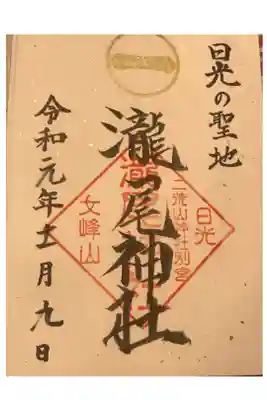 日光の聖地
瀧尾神社
令和元年十一月九日
日光
二荒山神社別宮
女峰山